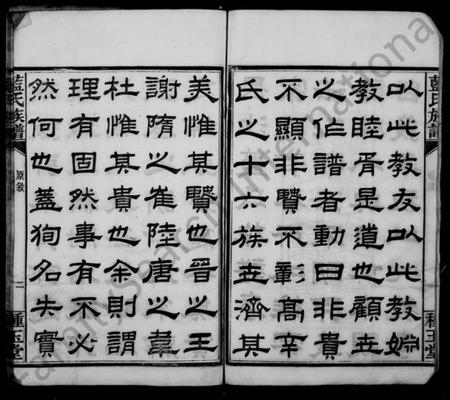 藍氏族譜
種玉堂
以此教友以此教婣
教睦胥是道也顧世
之作譜者動曰非貴
不顯非賢不彰高辛
氏之十六族世濟其
美惟其賢也晉之王
謝隋之崔陸唐之韋
杜惟其貴也余則謂
理有固然事有不必
然何也蓋狥名失實
藍氏族譜
原敘
二
種玉堂
FamilySearch International